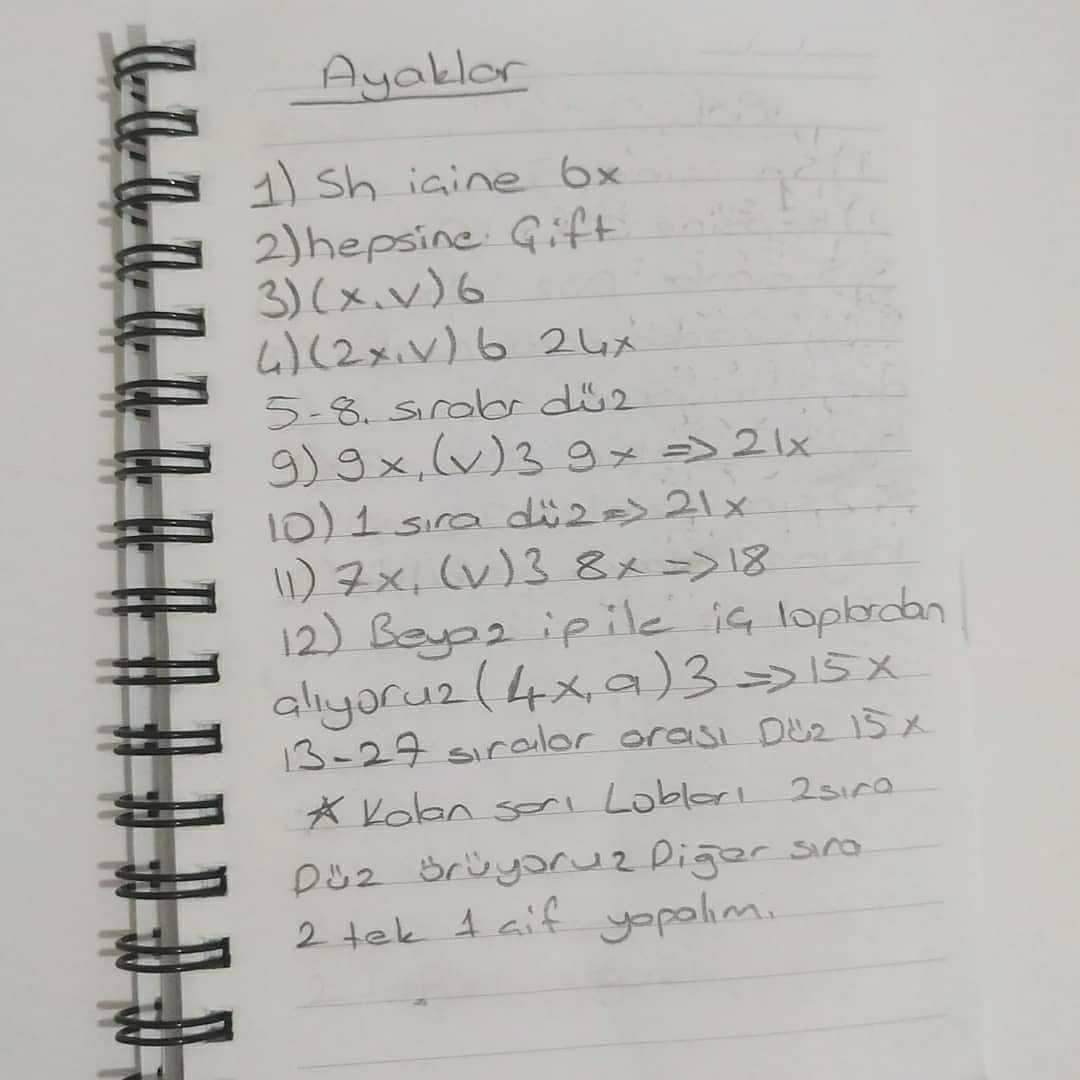 Ayaklar
1) Sh içine 6x
2) hepsine Çift
3) (x,v)6
4) (2x,v) 6 24x
5-8. sıralar düz
9) 9x,(v)3 9x => 21x
10) 1 sıra düz => 21x
11) 7x, (v)3 8x => 18
12) Beyaz ip ile iç loplardan
alıyoruz (4x, a)3 => 15x
13-27 sıralar arası Düz 15x
* Kalan sarı Lobları 2 sıra
Düz örüyoruz Diğer sıra
2 tek 1 çif yapalım.